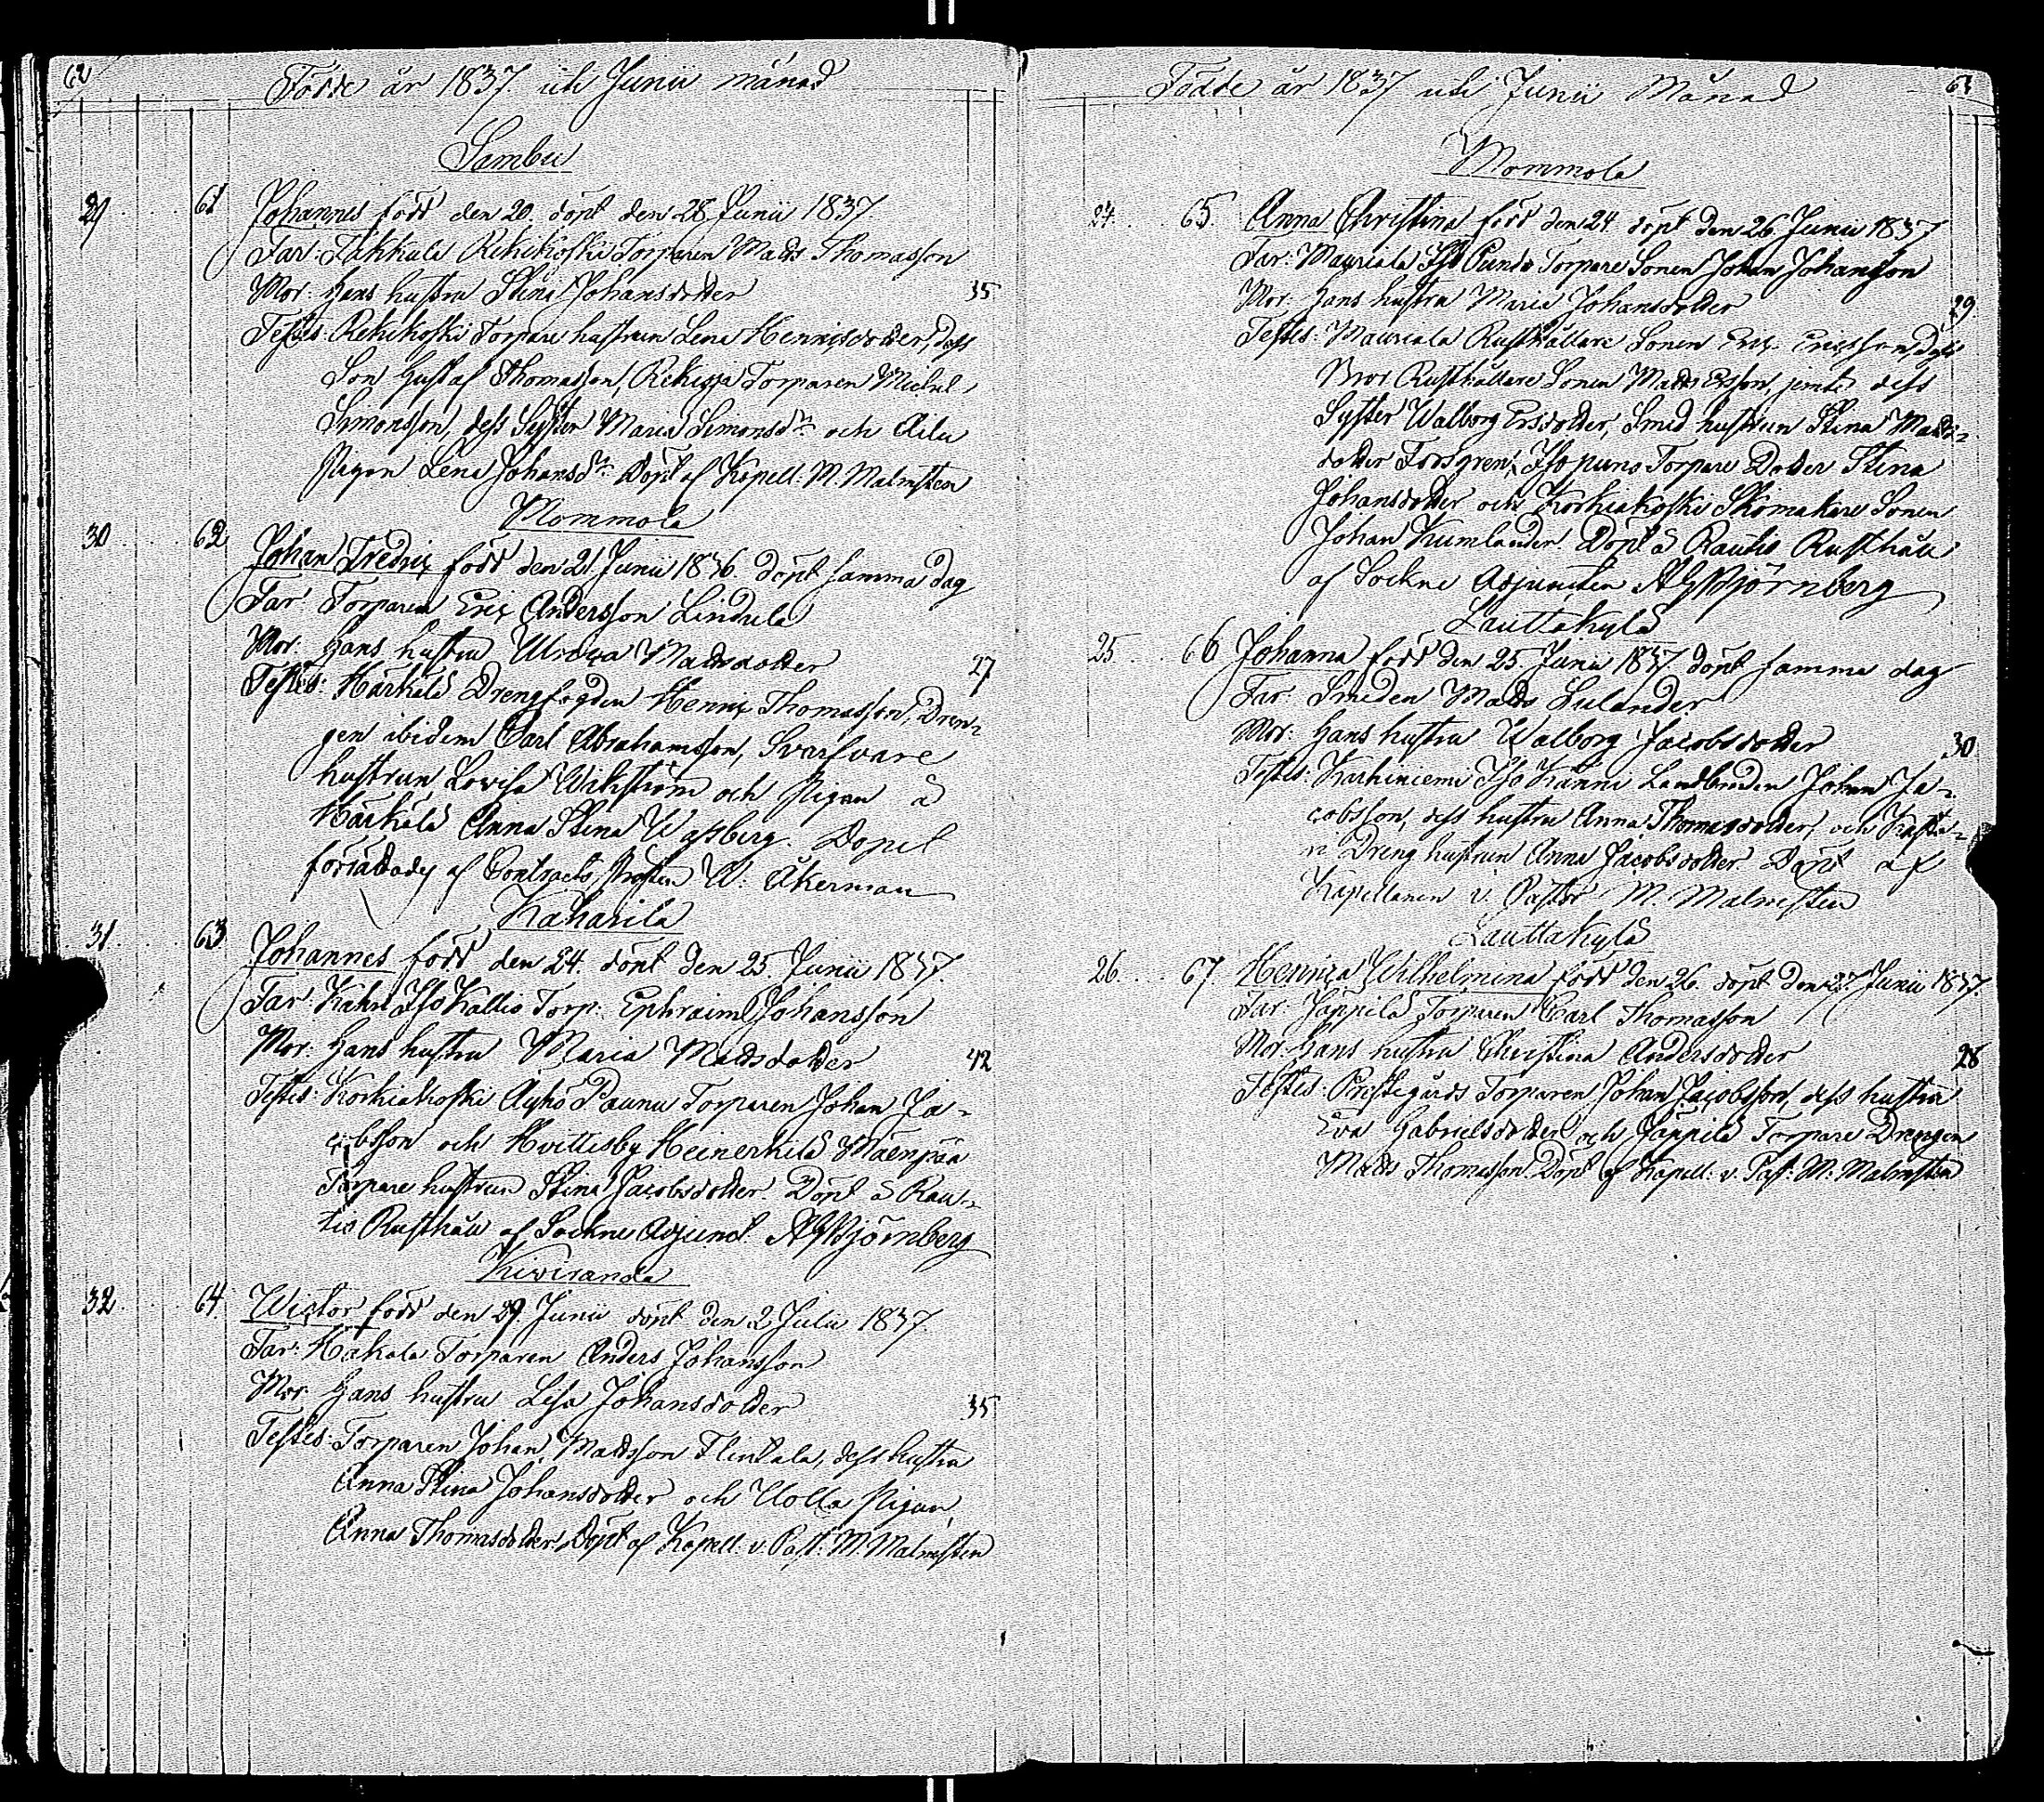 62
Födde år 1837. uti Junii månad
Sambu
29 61 Johannes född den 20. döpt den 28 Junii 1837.
Far: Takkula Rekikoski Torparen Matts Thomasson
Mor: Hans hustru Stina Johansdotter 35
Testes: Rekikoski Torpare hustrun Lena Henricsdotter, dess
Son Gustaf Thomasson, Torparen Michel
Simonsson, dess Syster Maria Simonsdr och
Pigan Lena Johansdr Döpt af Kapell: M. Malmsten
Mommola
30 62 Johan Fredric född den 21. Junii 1836. döpt samma dag
Far: Torparen Eric Andersson Lindula
Mor: Hans hustru Ulrica Mattsdotter 27
Testes: Härkälä Drengfogden Henric Thomasson, Dren-
gen ibidem Carl Abrahamsson, Svarfvare
hustrun Lovisa Wikström och Pigan å
Härkälä Anna Stina Wassberg. Dopet
förrättades af Contracts Prosten W: Åkerman
Kaharila
31. 63 Johannes född den 24. döpt den 25. Junii 1837.
Far: Kahri Iso Kallio Torp: Ephraim Johansson
Mor: Hans hustru Maria Mattsdotter 42
Testes: Korkiakoski Äyhö Paunu Torparen Johan Ja-
cobsson och Hvittisby Heinerkilä Mäenpää
Torpare hustrun Stina Jacobsdotter. Döpt å Rau-
tio Rusthåll af Sockne Adjunct. A G Björnberg
Kiviranda
32. 64. Wictor född den 29. Junii döpt den 2 Julii 1837.
Far: Hakala Torparen Anders Johansson
Mor: Hans hustru Lisa Johansdotter 35
Testes: Torparen Johan Mattsson Flinkala, dess hustru
Anna Stina Johansdotter och Uolla Pigan,
Anna Thomasdotter, Döpt af Kapell: v. Past: M: Malmsten
63
Födde år 1837 uti Junii Månad
Mommola
24. 65. Anna Christina född den 24. döpt den 26. Junii 1837
Far: Mauriala Iso Torpare Sonen Johan Johansson
Mor: Hans hustru Maria Johansdotter 29.
Testes: Mauriala Rusthållare Sonen Eric Ericsson, dess
Bror Rusthållare Sonen Matts Ersson, jemte dess
Syster Walborg Ersdotter, Smed hustrun Stina Matts-
dotter Forsgren, Torpare Dotter Stina
Johansdotter och Korkiakoski Skomakare Sonen
Johan Kumlander. Döpt å Rautio Rusthåll
af Sockne Adjuncten A G Björnberg
Lauttakylä
25 66 Johanna född den 25. Junii 1837 döpt samma dag
Far: Smeden Matts Sulander
Mor: Hans hustru Walborg Jacobsdotter 30
Testes: Karhiniemi Iso Känni Landbonden Johan Ja-
cobsson, dess hustru Anna Thomasdotter, och
Dreng hustrun Anna Jacobsdotter. Döpt af
Kapellanen v. Pastor M. Malmsten
Lauttakylä
26. 67. Henrica Wilhelmina född den 26. döpt den 27. Junii 1837.
Far: Jäppilä Torparen Carl Thomasson
Mor: Hans hustru Christina Andersdotter 28
Testes: Prestegårds Torparen Johan Jacobsson, dess hustru
Eva Gabrielsdotter och Jäppilä Torpare Drengen
Matts Thomasson. Döpt af Kapell: v. Past: M: Malmsten